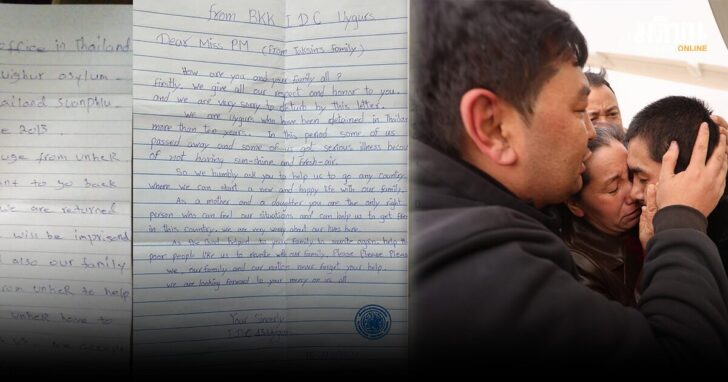 office in Thailand
uighur asylum
hailand suanphlu
ce 2013
uge from unhcR
nt to go back
we are returned
will be imprisond
d also our family
from unhcR to help
unhcR have to
from BKK I D C Uygurs
Dear Miss PM (from Taksins family)
How are you and your family all?
Firstly, we give all our respect and honor to you.
and we are very sorry to deturb by this letter.
we are Uygurs who have been detained in Thailan
more than ten years. In this period some of us
passed away and some of us got serious illness becau
of not having sun-shine and fresh-air.
So we humbly ask you to help us to go any country
where we can start a new and happy life with our family.
As a mother and a daughter you are the only right
person who can feel our situations and can help us to get free
in this country. we are very worry about our lives here.
As the God helped to your family to reunite again help the
poor people like us to reunite with our family. Please Please Please
we, our family and our nation never forget your help.
we are looking forward to your mercy on us all.
Your Sincerly
I D C Uygurs
ONLINE